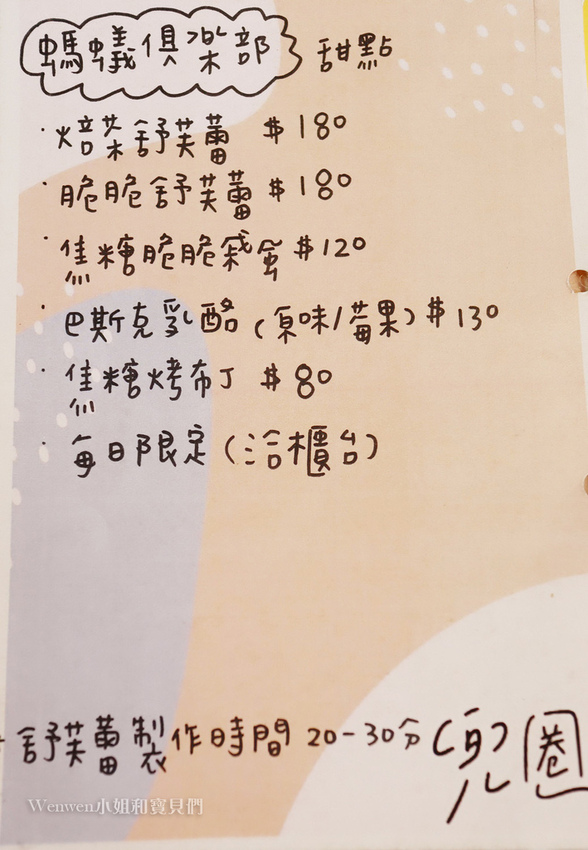 螞蟻俱樂部 甜點
·焙茶舒芙蕾 $180
·脆脆舒芙蕾 $180
·焦糖脆脆戚風 $120
·巴斯克乳酪(原味/莓果) $130
·焦糖烤布丁 $80
·每日限定(洽櫃台)
舒芙蕾製作時間 20-30分
圈
Wenwen小姐和寶貝們